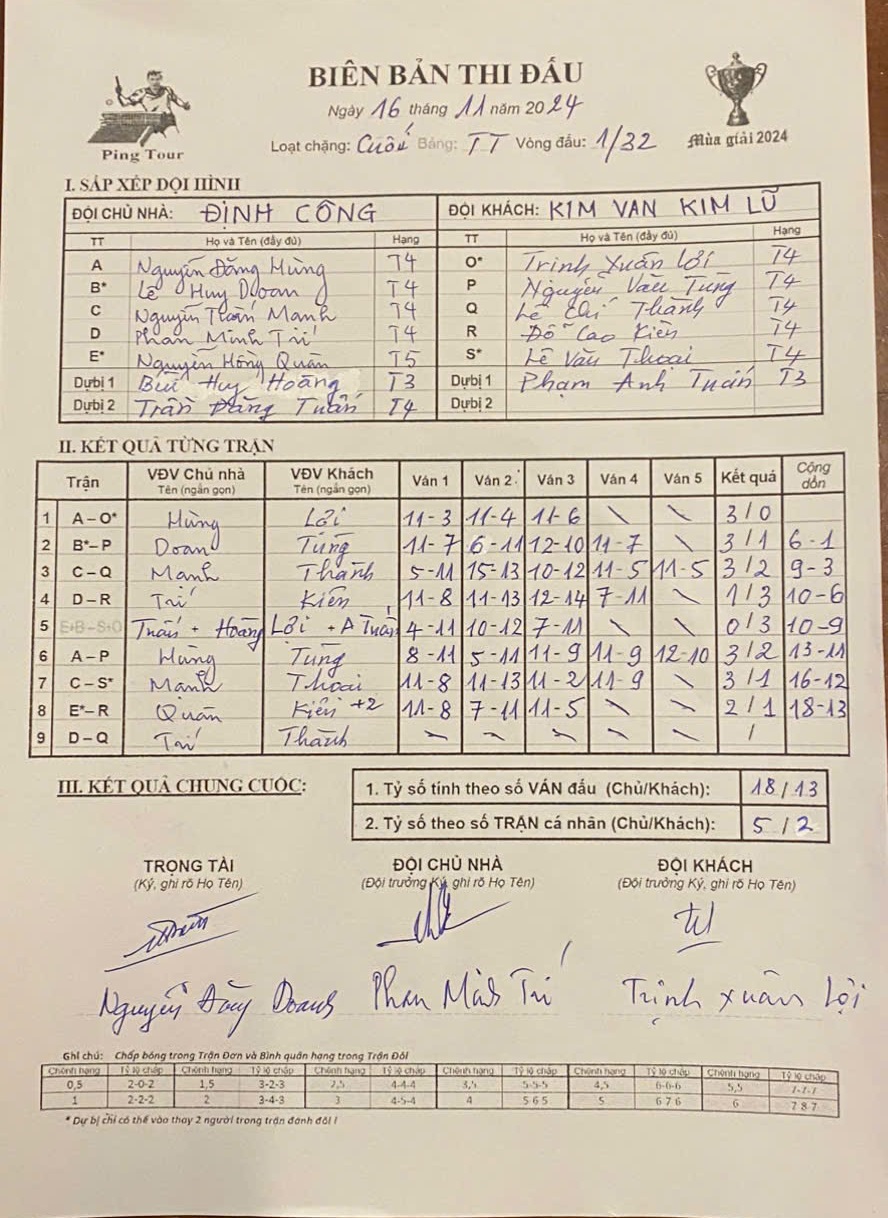 BIÊN BẢN THI ĐẤU
Ngày 16 tháng 11 năm 2024
Ping Tour
Loạt chặng: Cuối Bảng: TT Vòng đấu: 1/32
Mùa giải 2024
I. SẮP XẾP ĐỘI HÌNH
ĐỘI CHỦ NHÀ: ĐỊNH CÔNG ĐỘI KHÁCH: KIM VAN KIM LŨ
TT Họ và Tên (đầy đủ) Hạng TT Họ và Tên (đầy đủ) Hạng
A Nguyễn Đăng Hùng T4 O* Trịnh Xuân Lời T4
B* Lê Huy Doan T4 P Nguyễn Văn Tùng T4
C Nguyễn Mạnh T4 Q Lê Chí Thành T4
D Phan Minh Trí T4 R Đỗ Cao Kiên T4
E* Nguyễn Hồng Quân T5 S* Lê Văn Thoai T4
Dự bị 1 Bùi Huy Hoàng T3 Dự bị 1 Phạm Anh Tuấn T3
Dự bị 2 Trần Đăng Tuấn T4 Dự bị 2
II. KẾT QUẢ TỪNG TRẬN
Trận VĐV Chủ nhà VĐV Khách Ván 1 Ván 2 Ván 3 Ván 4 Ván 5 Kết quả Cộng dồn
Tên (ngắn gọn) Tên (ngắn gọn)
1 A – O* Hùng Lời 11-3 11-4 11-6 \ \ 3/0
2 B* – P Doan Tùng 11-7 6-11 12-10 11-7 \ 3/1 6-1
3 C – Q Mạnh Thành 5-11 15-13 10-12 11-5 11-5 3/2 9-3
4 D – R Trí Kiên 11-8 11-13 12-14 7-11 \ 1/3 10-6
5 E+B–S+O Tuấn + Hoàng Lời + A Tuấn 4-11 10-12 7-11 \ \ 0/3 10-9
6 A – P Hùng Tùng 8-11 5-11 11-9 11-9 12-10 3/2 13-11
7 C – S* Mạnh Thoai 11-8 11-13 11-2 11-9 \ 3/1 16-12
8 E* – R Quân Kiên +2 11-8 7-11 11-5 \ \ 2/1 18-13
9 D – Q Trí Thành \ \ \ \ \ /
III. KẾT QUẢ CHUNG CUỘC:
1. Tỷ số tính theo số VÁN đấu (Chủ/Khách): 18/13
2. Tỷ số theo số TRẬN cá nhân (Chủ/Khách): 5/2
TRỌNG TÀI ĐỘI CHỦ NHÀ ĐỘI KHÁCH
(Ký, ghi rõ Họ Tên) (Đội trưởng Ký, ghi rõ Họ Tên) (Đội trưởng Ký, ghi rõ Họ Tên)
Nguyễn Doanh Phan Minh Trí Trịnh Xuân Lời
Ghi chú: Chấp bóng trong Trận Đơn và Bình quân hạng trong Trận Đôi
Chênh hạng Tỷ lệ chấp Chênh hạng Tỷ lệ chấp Chênh hạng Tỷ lệ chấp Chênh hạng Tỷ lệ chấp Chênh hạng Tỷ lệ chấp Chênh hạng Tỷ lệ chấp
0,5 2-0-2 1,5 3-2-3 2,5 4-4-4 3,5 5-5-5 4,5 6-6-6 5,5 7-7-7
1 2-2-2 2 3-4-3 3 4-5-4 4 5 6 5 5 6 7 6 6 7 8 7
* Dự bị chỉ có thể vào thay 2 người trong trận đánh đôi !